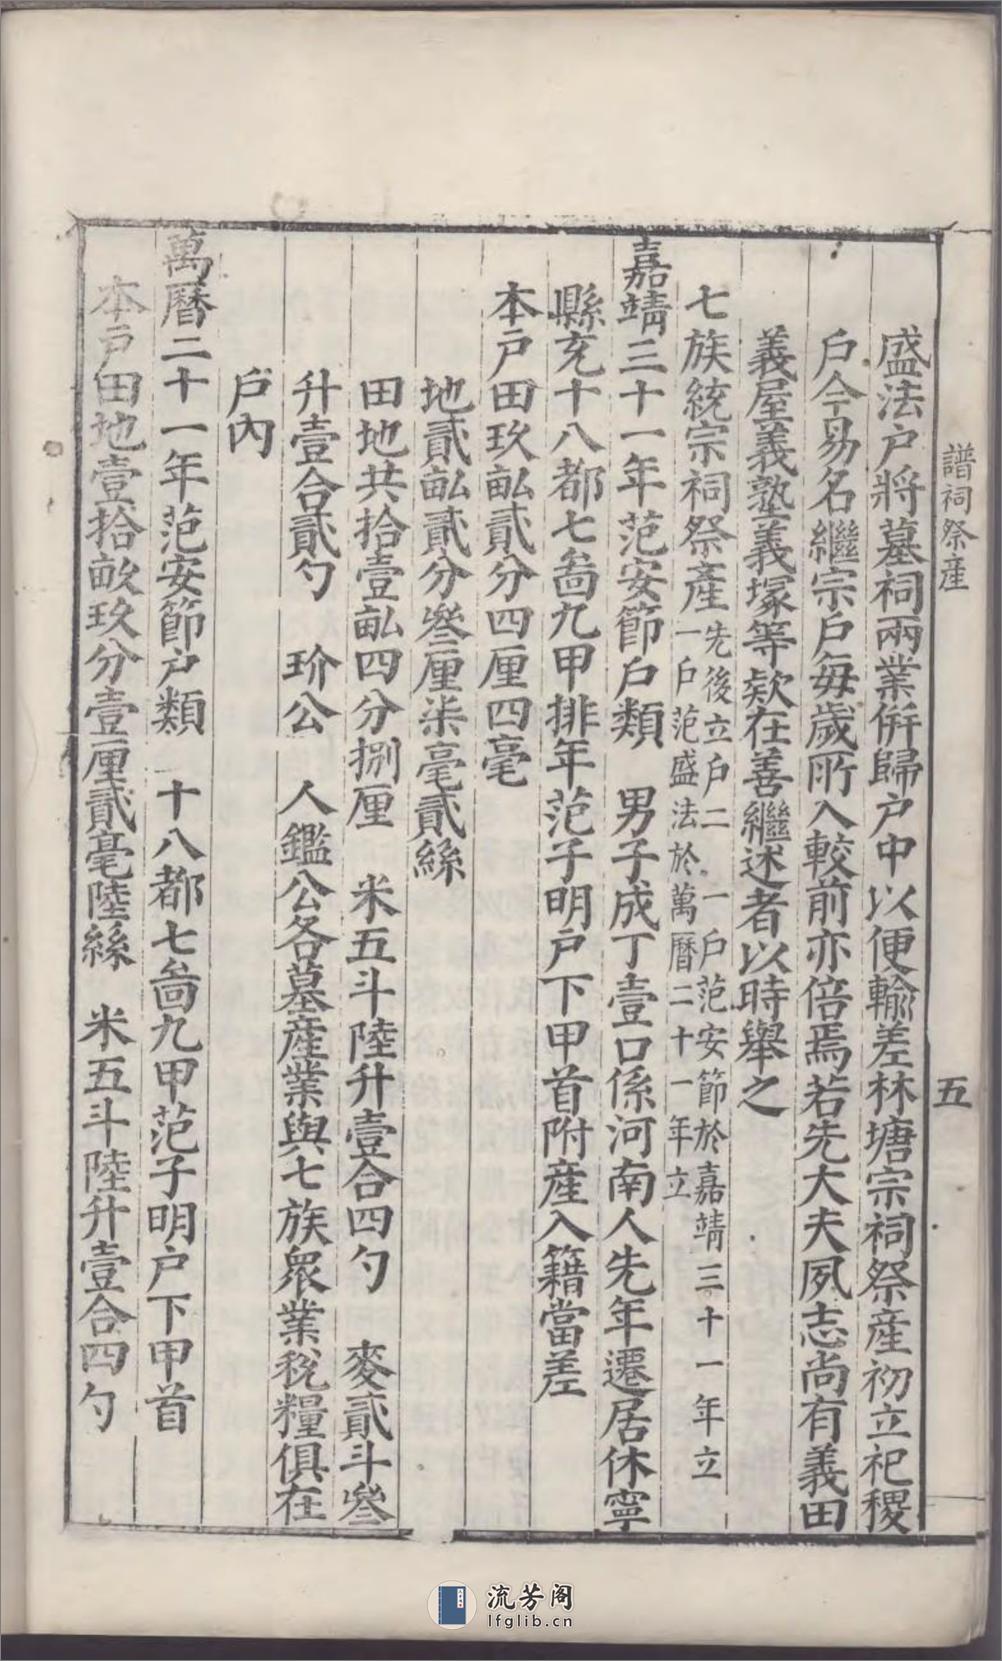 譜祠祭產
五
盛法户將墓祠兩業倂歸户中以便輸差林塘宗祠祭產初立祀稷
户今易名繼宗户每歲所入較前亦倍焉若先大夫夙志尚有義田
義屋義塾義塚等欵在善繼述者以時舉之
七族統宗祠祭產先後立户二 一户范安節於嘉靖三十一年立
一户范盛法於萬曆二十一年立
嘉靖三十一年范安節户類 男子成丁壹口係河南人先年遷居休寧
縣充十八都七啚九甲排年范子明户下甲首附產入籍當差
本户田玖畆貳分四厘四毫
地貳畆貳分叄厘柒毫貳絲
田地共拾壹畆四分捌厘 米五斗陸升壹合四勺 麥貳斗叄
升壹合貳勺 玠公 人鑑公各墓產業與七族衆業稅糧俱在
户內
萬曆二十一年范安節户類 十八都七啚九甲范子明户下甲首
本户田地壹拾畝玖分壹厘貳毫陸絲 米五斗陸升壹合四勺
流芳阁
lfglib.cn